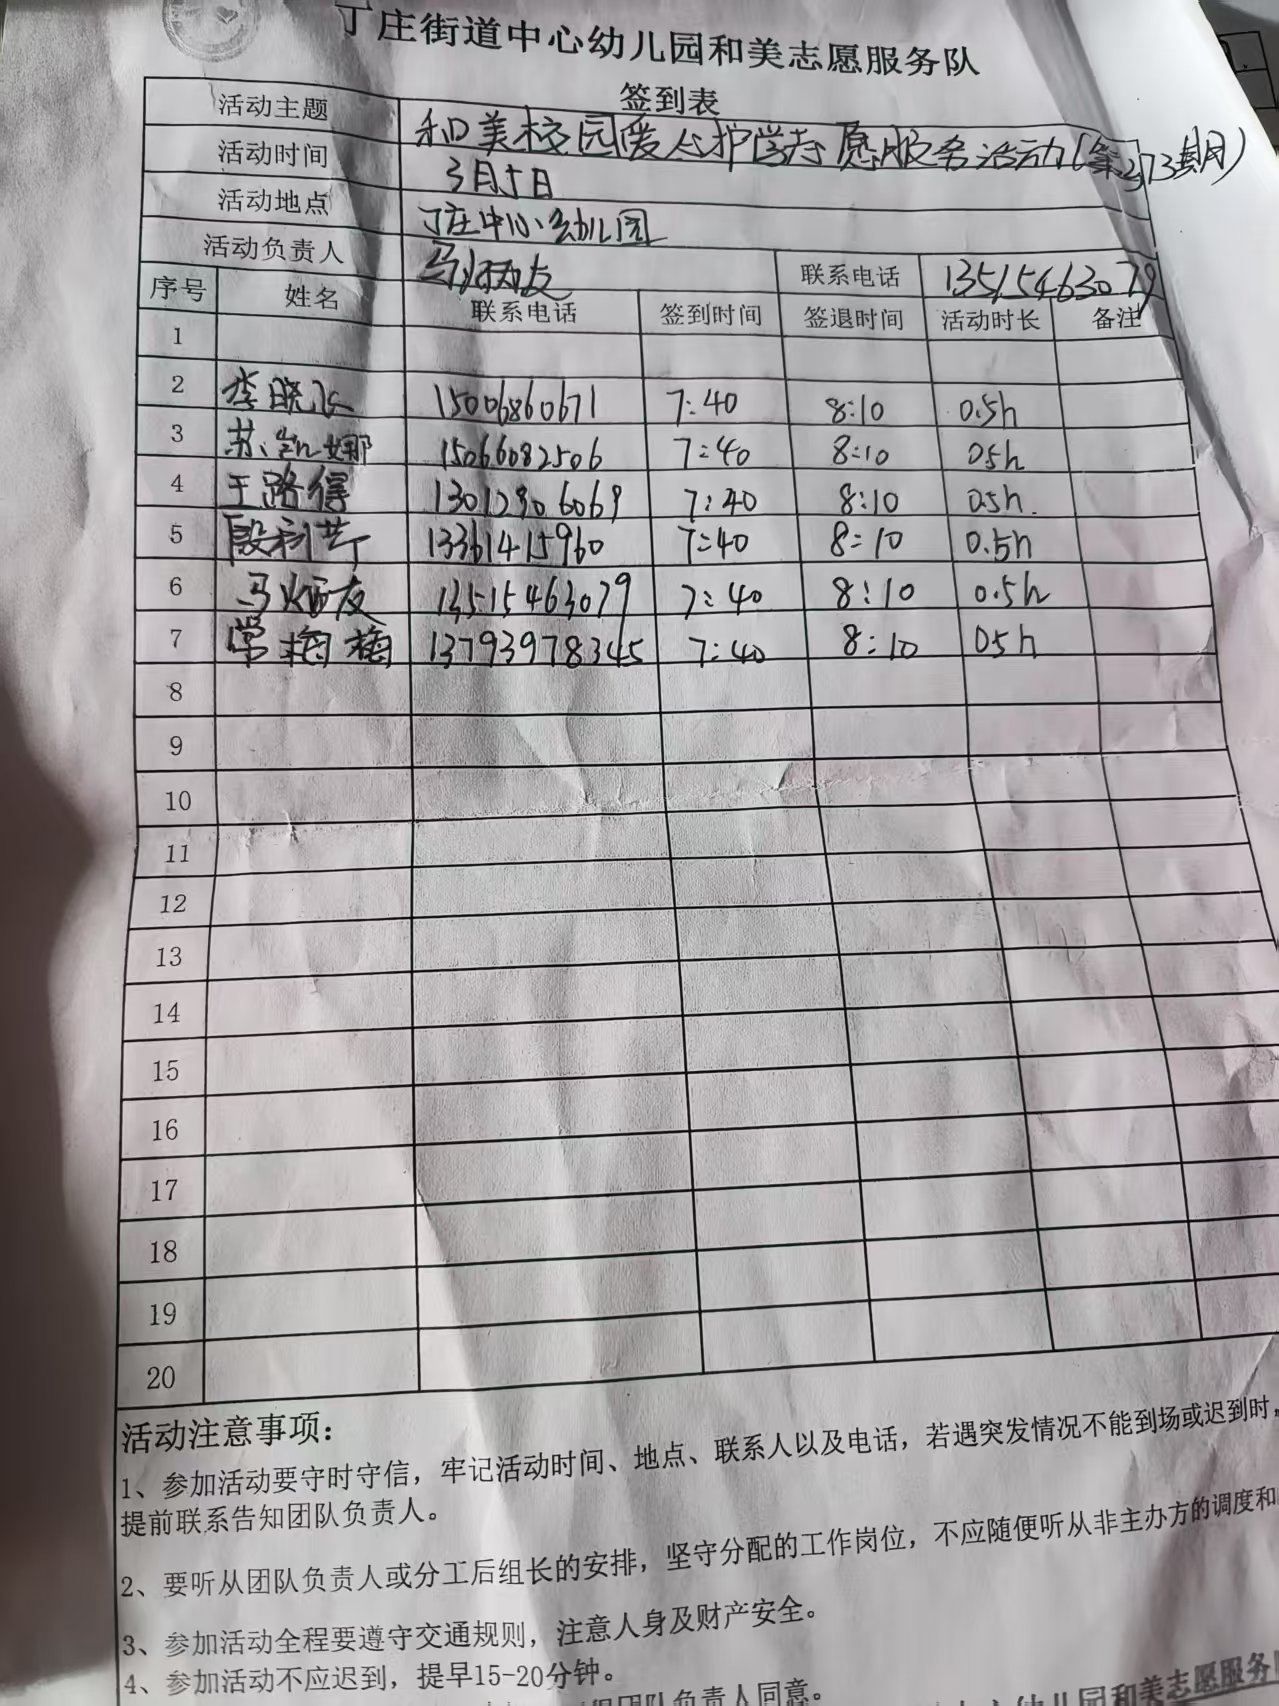 丁庄街道中心幼儿园和美志愿服务队
签到表
活动主题 和美校园爱心护学志愿服务活动(第273期)
活动时间 3月5日
活动地点 丁庄中心幼儿园
活动负责人 马炳友 联系电话 13515463079
序号 姓名 联系电话 签到时间 签退时间 活动时长 备注
1
2 李晓 15006860671 7:40 8:10 0.5h
3 苏凯娜 15066082506 7:40 8:10 05h
4 王路得 13012906069 7:40 8:10 0.5h.
5 段利芹 13361415960 7:40 8:10 0.5h
6 马炳友 13515463079 7:40 8:10 0.5h
7 常梅梅 13793978345 7:40 8:10 05h
8
9
10
11
12
13
14
15
16
17
18
19
20
活动注意事项：
1、参加活动要守时守信，牢记活动时间、地点、联系人以及电话，若遇突发情况不能到场或迟到时，
提前联系告知团队负责人。
2、要听从团队负责人或分工后组长的安排，坚守分配的工作岗位，不应随便听从非主办方的调度和
3、参加活动全程要遵守交通规则，注意人身及财产安全。
4、参加活动不应迟到，提早15-20分钟。
团队负责人同意。
幼儿园和美志愿服务